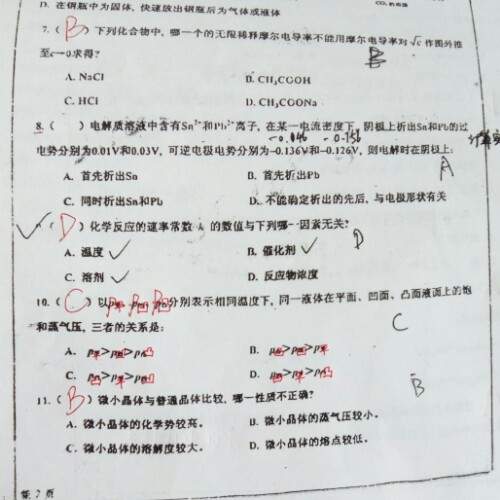 D. 在钢瓶中为固体，快速放出钢瓶后为气体或液体
7.（B）下列化合物中，哪一个的无限稀释摩尔电导率不能用摩尔电导率对√c 作图外推
至c→0求得？
B
A. NaCl B. CH₃COOH
C. HCl D. CH₃COONa
8.（ ）电解质溶液中含有Sn²⁺和Pb²⁺离子，在某一电流密度下，阴极上析出Sn和Pb的过
电势分别为0.01V和0.03V，可逆电极电势分别为-0.136V和-0.126V，则电解时在阴极上：
A. 首先析出Sn B. 首先析出Pb
A
C. 同时析出Sn和Pb D. 不能确定析出的先后，与电极形状有关
（D）化学反应的速率常数 k 的数值与下列哪一因素无关？
A. 温度 B. 催化剂
D
C. 溶剂 D. 反应物浓度
10.（C）以 p平 p凹 p凸分别表示相同温度下，同一液体在平面、凹面、凸面液面上的饱
和蒸气压，三者的关系是：
C
A. B.
C. D.
11.（B）微小晶体与普通晶体比较，哪一性质不正确？
B
A. 微小晶体的化学势较高。 B. 微小晶体的蒸气压较小。
C. 微小晶体的溶解度较大。 D. 微小晶体的熔点较低。
第 2 页